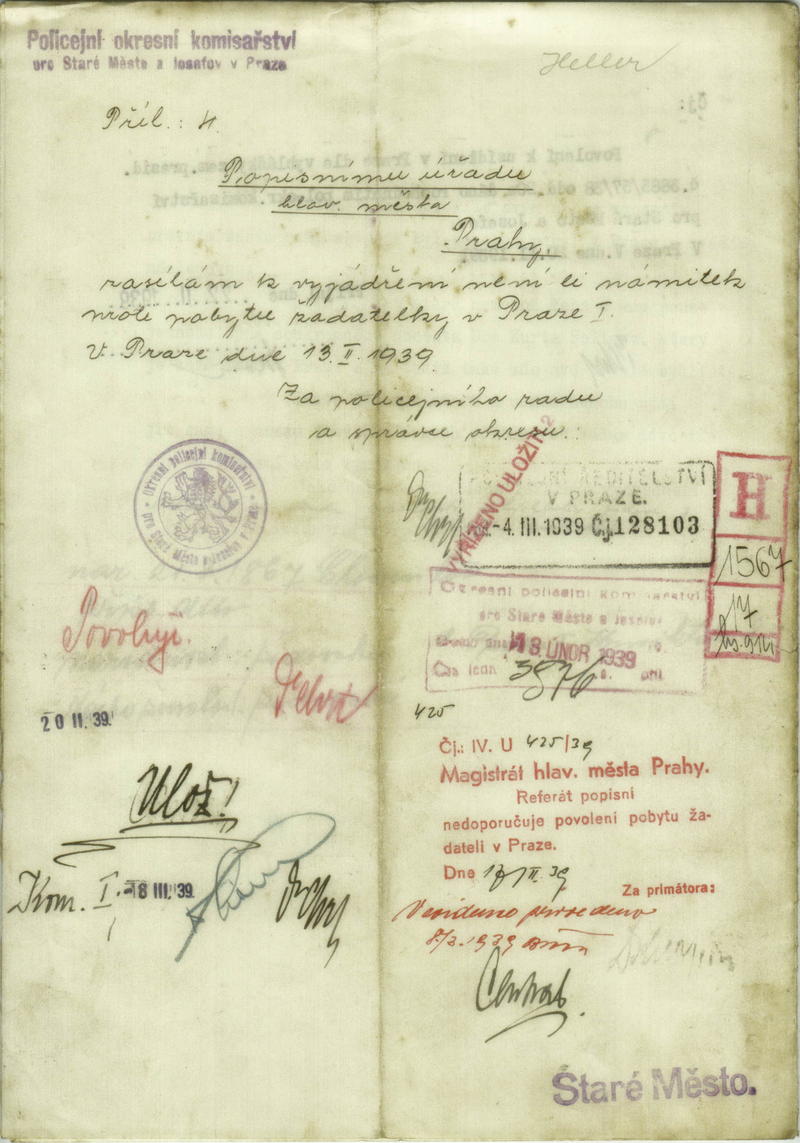 Policejní okresní komisařství
pro Staré Město a Josefov v Praze
Heller
Příl.: 4.
Popisnímu úřadu
hlav. města
Prahy.
zasílám k vyjádření není li námitek
proti pobytu žadatelky v Praze I.
V Praze dne 13.II.1939.
Za policejního radu
a správce okresu:
Okresní policejní komisařství
pro Staré Město a Josefov v Praze
VYŘÍZENO ULOŽIT
POLICEJNÍ ŘEDITELSTVÍ
V PRAZE.
-4.III.1939 Čj. 128103
H
1567
17
Okresní policejní komisařství
pro Staré Město a Josefov
13. ÚNOR 1939
3876
Povoluji.
20 II 39.
425
Čj.: IV. U 425/39
Magistrát hlav. města Prahy.
Referát popisní
nedoporučuje povolení pobytu ža-
dateli v Praze.
Dne 17/II.39
Za primátora:
Ulož!
Kom. I. -8 III 39.
V evidenci provedeno
1939
Staré Město.